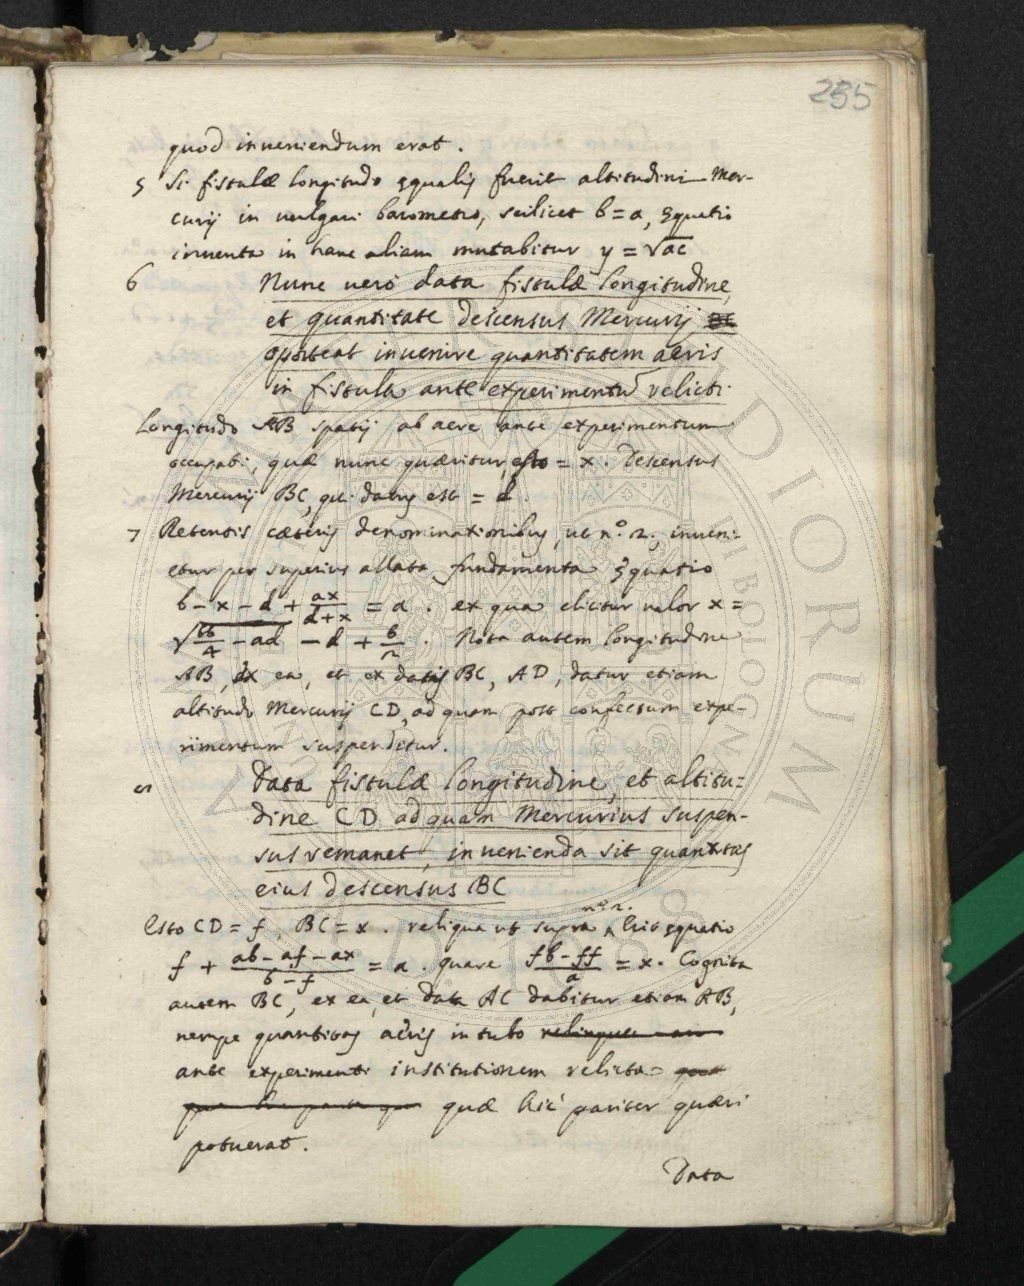 235
quod inueniendum erat.
5 Si fistulæ longitudo ęqualis fuerit altitudini Mer-
curij in uulgari barometro, scilicet b = a, ęquatio
inuenta in hanc aliam mutabitur y = √ac
6 Nunc uerò data fistulæ longitudine,
et quantitate descensus Mercurij BC
oporteat inuenire quantitatem aeris
in fistula ante experimentũ relicti.
Longitudo AB spatij ab aere ante experimentum
occupati, quæ nunc quæritur, esto = x. Descensus
Mercurij BC, qui datus est = d.
7 Retentis cæteris denominationibus, ut n.º 2., inueni-
etur per superius allata fundamenta ęquatio
b - x - d + ax/d+x = a. ex qua elicitur ualor x =
√bb/4 - ad - d + b/2. Nota autem longitudine
AB, ex ea, et ex datis BC, AD, datur etiam
altitudo Mercurij CD, ad quam post confectum expe-
rimentum suspendetur.
8 Data fistulæ longitudine, et altitu-
dine CD ad quam Mercurius suspen-
sus remanet, inuenienda sit quantitas
eius descensus BC
Esto CD = f, BC = x. reliqua ut supra n.º 2. erit ęquatio
f + ab - af - ax/b - f = a. quare fb - ff/a = x. Cognita
autem BC, ex ea, et data AC dabitur etiam AB,
nempe quantitas aëris in tubo
ante experimenti institutionem relicta
quæ hìc pariter quæri
potuerat.
Data